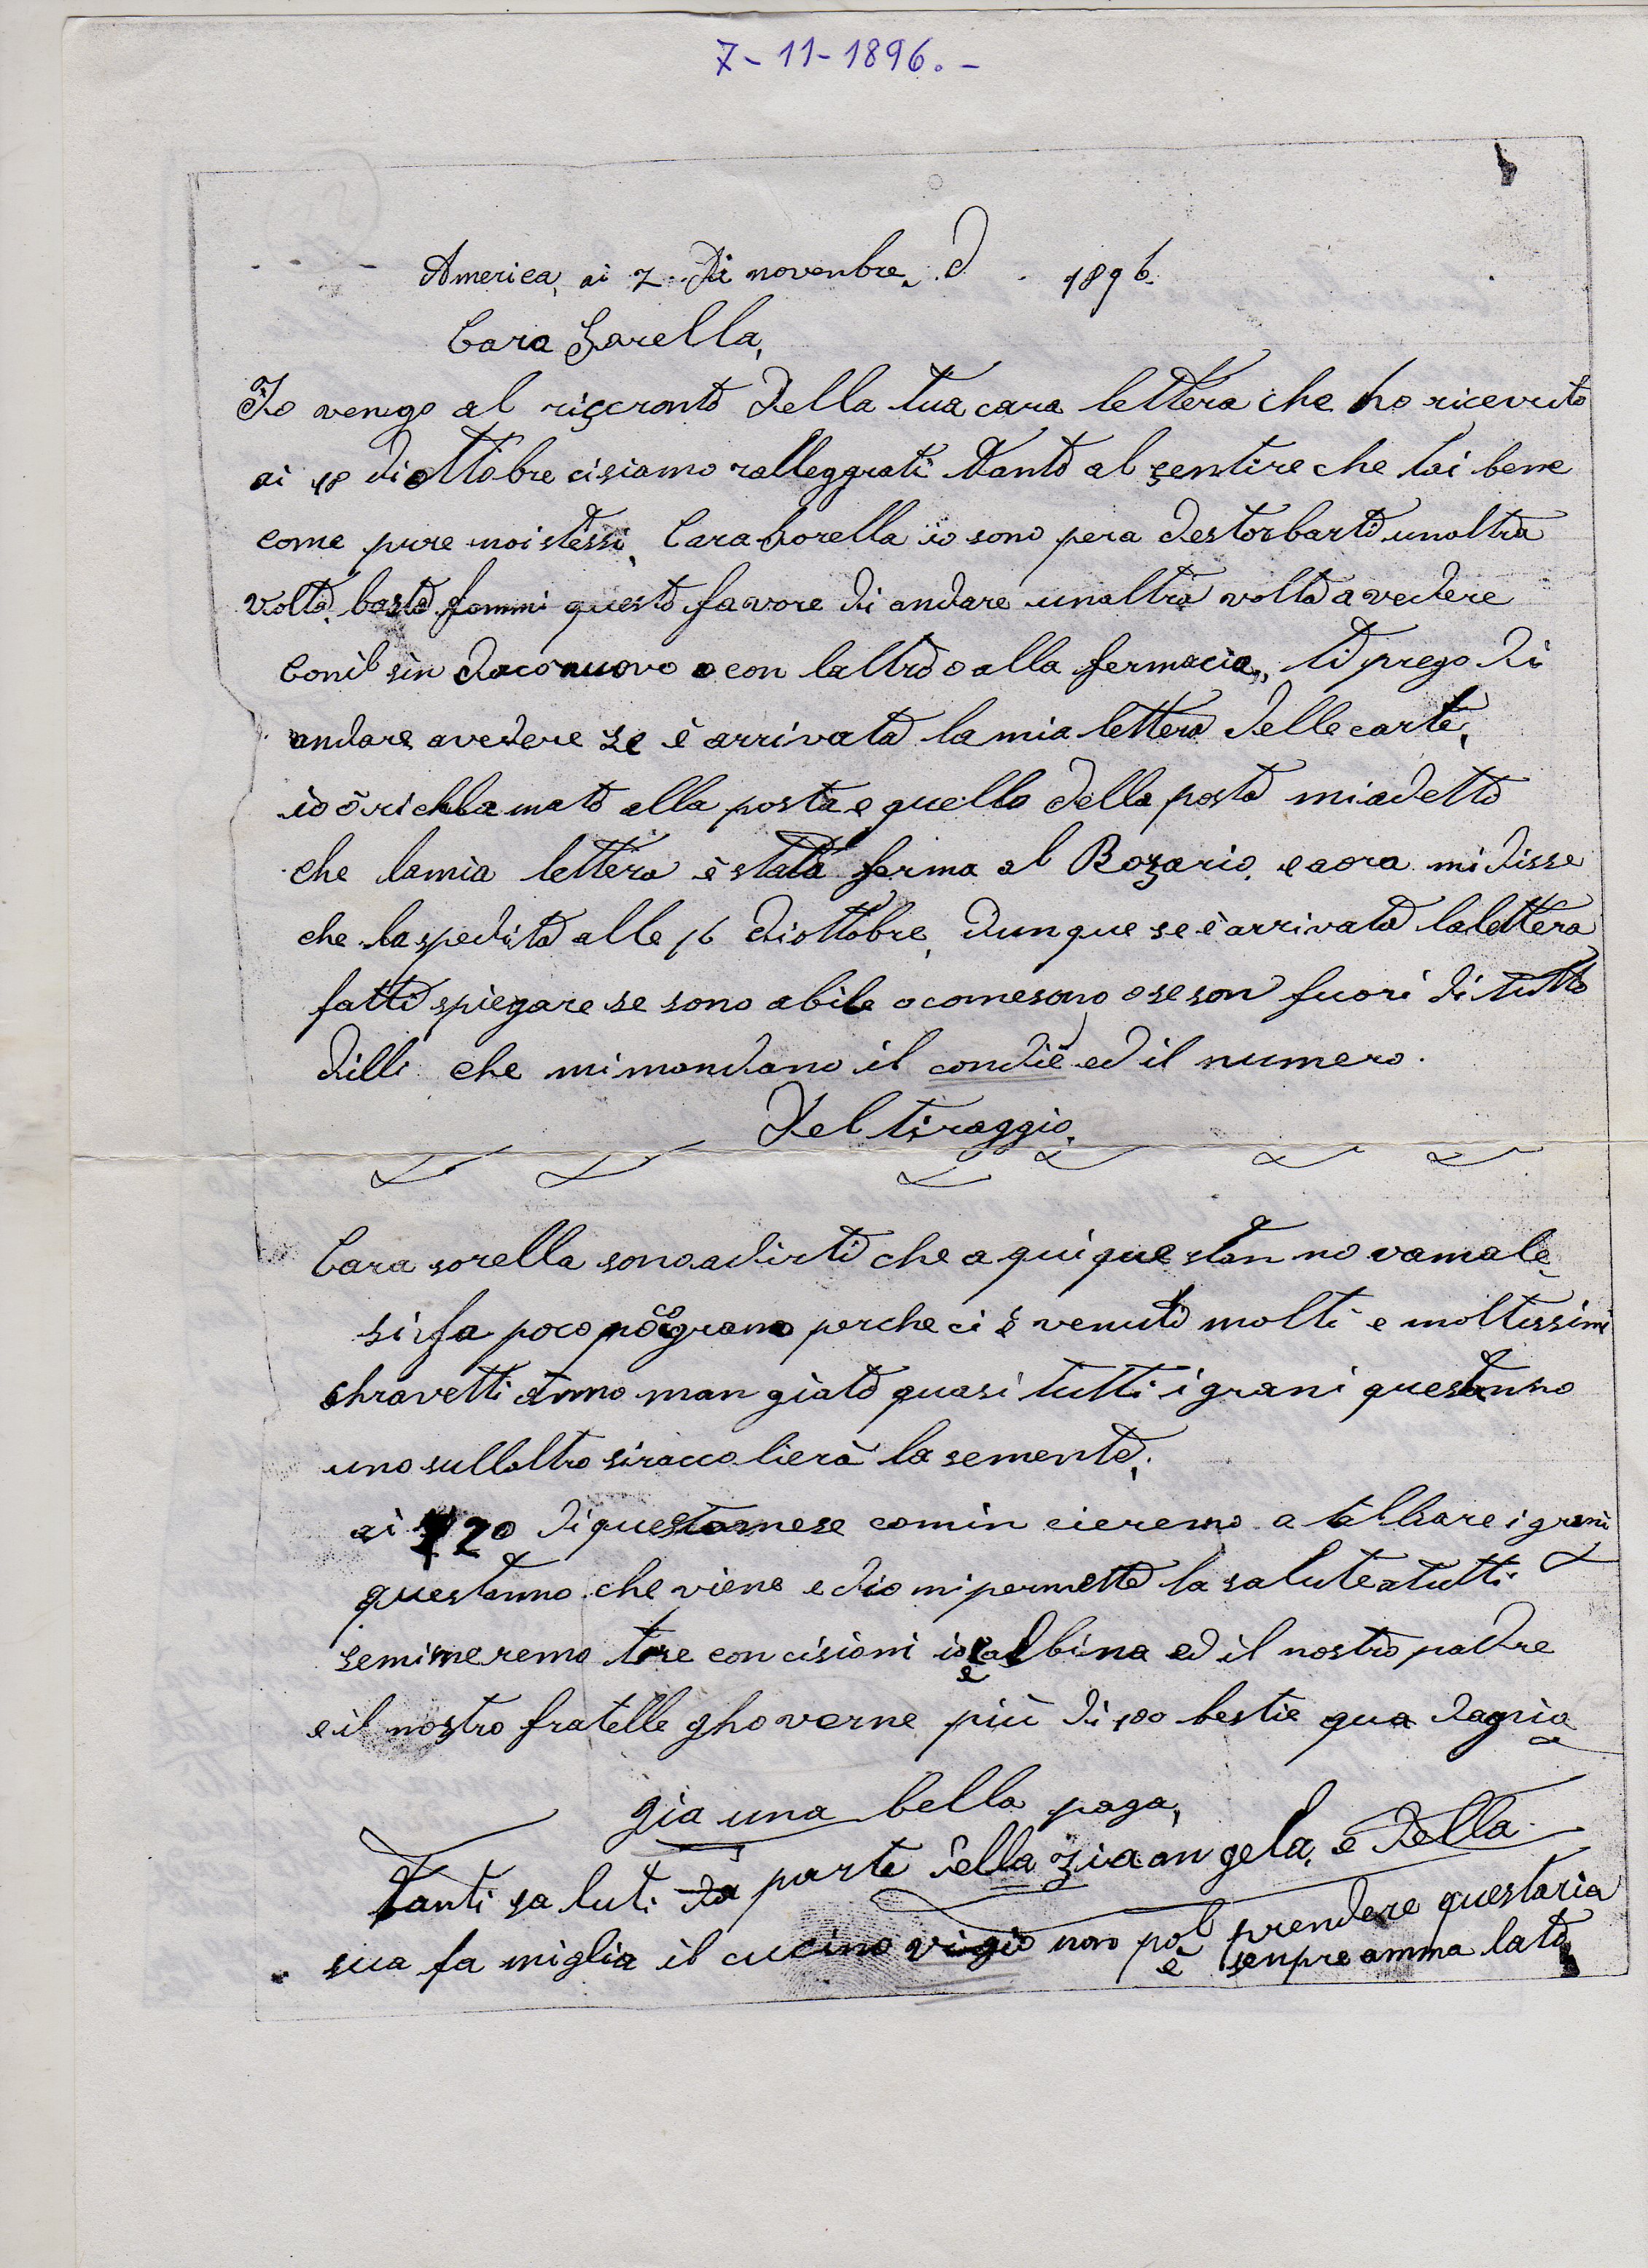 7-11-1896.-
America, ai 7. Di novenbre. d. 1896.
Cara Sarella,
Io vengo al riscronto della tua cara lettera che ho ricevuto
ai 18 di ottobre cisiamo ralleggrati tanto al sentire che tai bene
come pure noi stessi, Cara sorella io sono pera destorbarti unaltra
volta, basta fammi questo favore di andare unaltra volta a vedere
Conil sin daco nuovo o con laltro o alla fermacia, ti prego di
andare avedere se è arrivata la mia lettera delle carte,
io ò richla mato alla posta e quello della posta miadetto
che lamia lettera è stata ferma al Rozario, e aora mi disse
che laspedita alle 16 di ottobre, dunque se è arrivata la lettera
fatti spiegare se sono abile o comesono o se son fuori di tutto
dilli che mimandano il condiè ed il numero.
del tiraggio.
Cara sorella sono adirti che a qui questan no vamale,
si fa poco poco grano perche ci è venuto molti e moltissimi
chravetti anno man giato quasi tutti i grani questanno
uno sullaltro siracco lierà la sementa,
ai 20 di questomese comin cieremo a talliare i grani
questanno che viene e dio mi permette la salute a tutti
semineremo tre con cisioni io e albina ed il nostro padre
e il nostro fratello ghoverne più di 100 bestie qua dagnia
gia una bella paga,
Tanti sa luti da parte della zia an gela, e della
sua fa miglia il cucino vigio non pol prendere questaria
è senpre amma lato